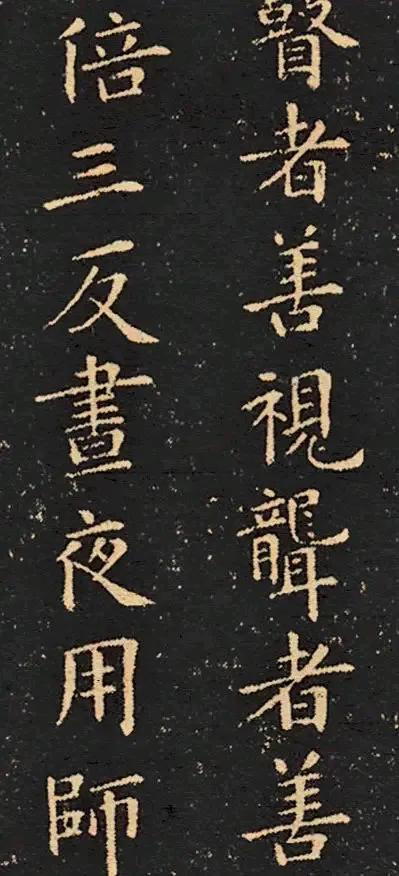 瞽者善視聾者善
倍三反晝夜用師